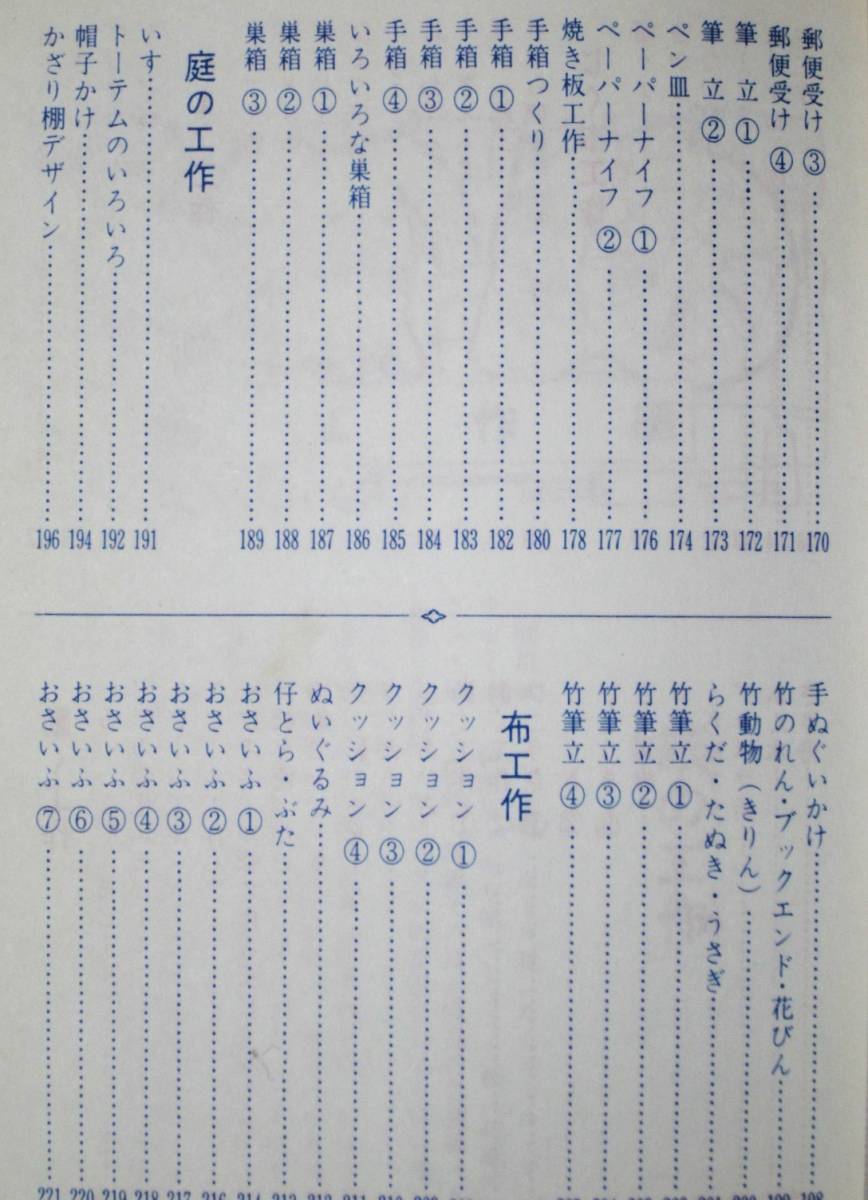 郵便受け ③ 170
郵便受け ④ 171
筆立 ① 172
筆立 ② 173
ペン皿 174
ペーパーナイフ ① 176
ペーパーナイフ ② 177
焼き板工作 178
手箱つくり 180
手箱 ① 182
手箱 ② 183
手箱 ③ 184
手箱 ④ 185
いろいろな巣箱 186
巣箱 ① 187
巣箱 ② 188
巣箱 ③ 189
庭の工作
いす 191
トーテムのいろいろ 192
帽子かけ 194
かざり棚デザイン 196
手ぬぐいかけ
竹のれん・ブックエンド・花びん
竹動物（きりん）
らくだ・たぬき・うさぎ
竹筆立 ①
竹筆立 ②
竹筆立 ③
竹筆立 ④
布工作
クッション ①
クッション ②
クッション ③
クッション ④
ぬいぐるみ
仔とら・ぶた
おさいふ ① 214
おさいふ ② 216
おさいふ ③ 217
おさいふ ④ 218
おさいふ ⑤ 219
おさいふ ⑥ 220
おさいふ ⑦ 221